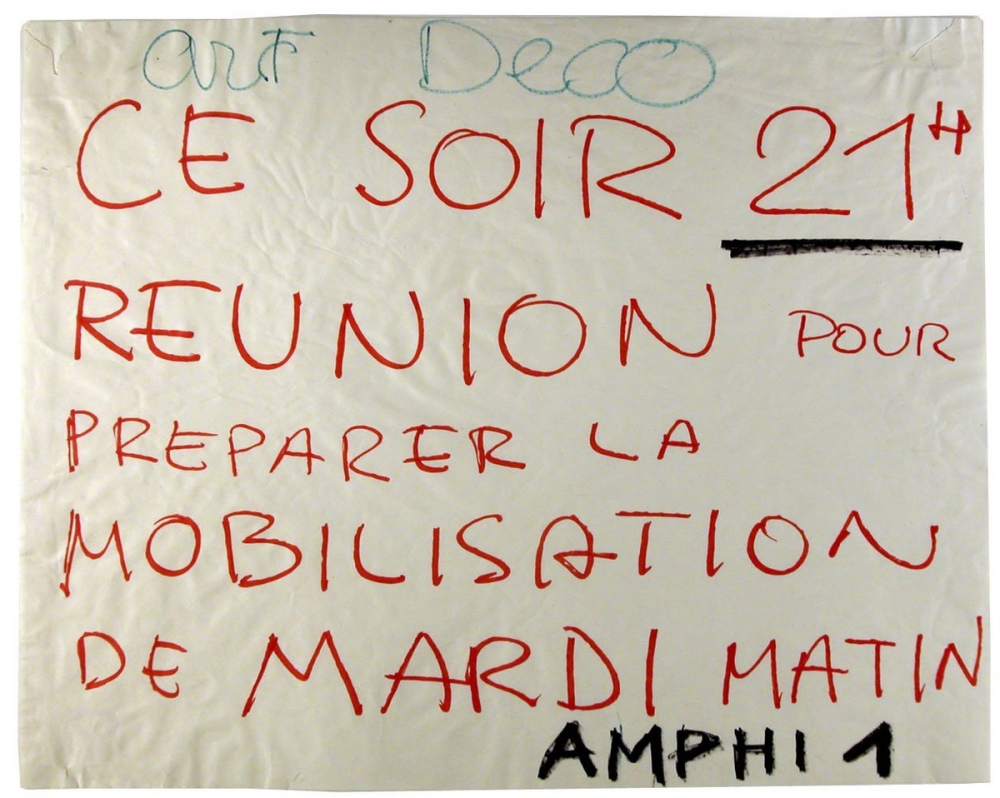 art Deco
CE SOIR 21H
REUNION POUR
PREPARER LA
MOBILISATION
DE MARDI MATIN
AMPHI 1